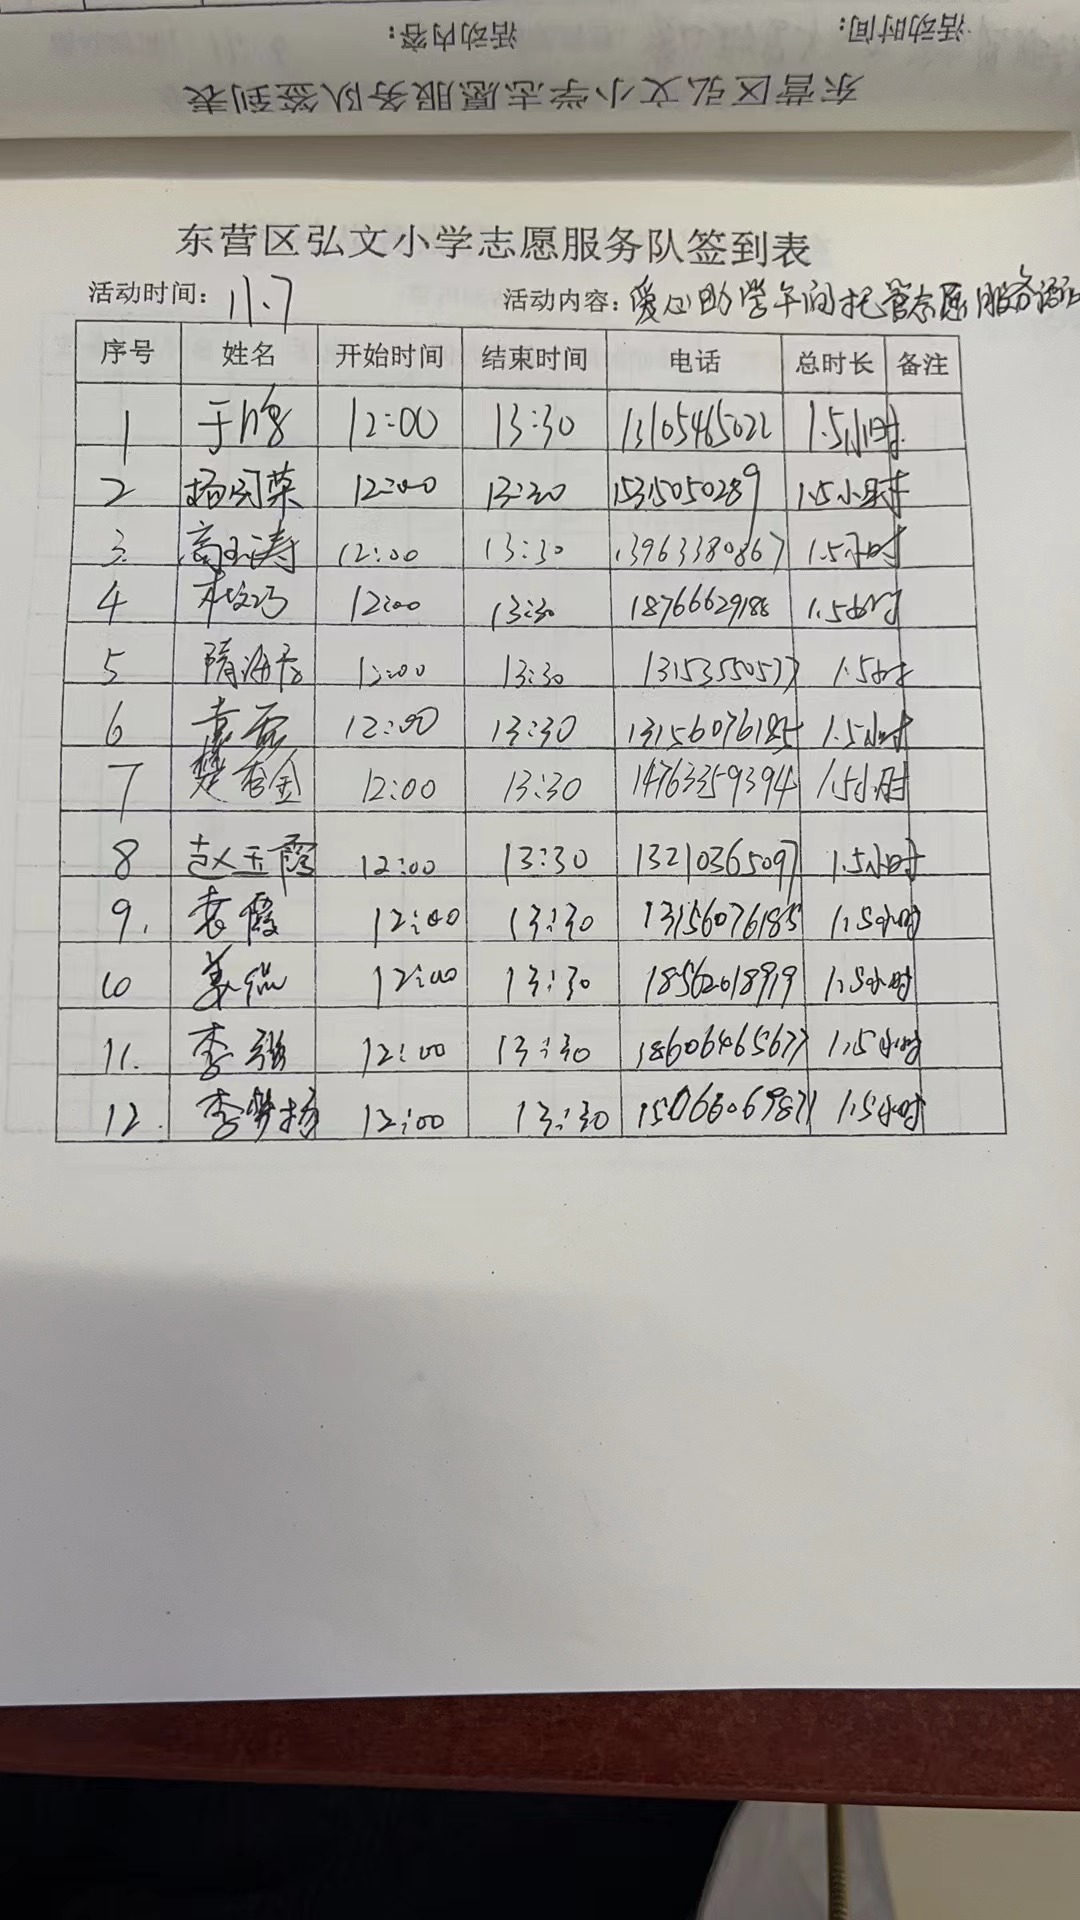 活动时间:
活动内容:
东营区弘文小学志愿服务队签到表
东营区弘文小学志愿服务队签到表
活动时间: 11.7 活动内容: 爱心助学午间托管志愿服务活动
序号 姓名 开始时间 结束时间 电话 总时长 备注
1 于 12:00 13:30 13105465022 1.5小时
2 杨闵荣 12:00 13:30 15315050289 1.5小时
3. 高玉涛 12:00 13:30 13963380867 1.5小时
4 12:00 13:30 18766629188 1.5小时
5 隋海 13:00 13:30 13153550577 1.5小时
6 袁霞 12:00 13:30 13156076185 1.5小时
7 楚香金 12:00 13:30 14763359394 1.5小时
8 赵玉霞 12:00 13:30 13210365097 1.5小时
9. 袁霞 12:00 13:30 13156076185 1.5小时
10 姜 12:00 13:30 18562018919 1.5小时
11. 李强 12:00 13:30 18606465677 1.5小时
12. 李梦杨 12:00 13:30 15066069871 1.5小时